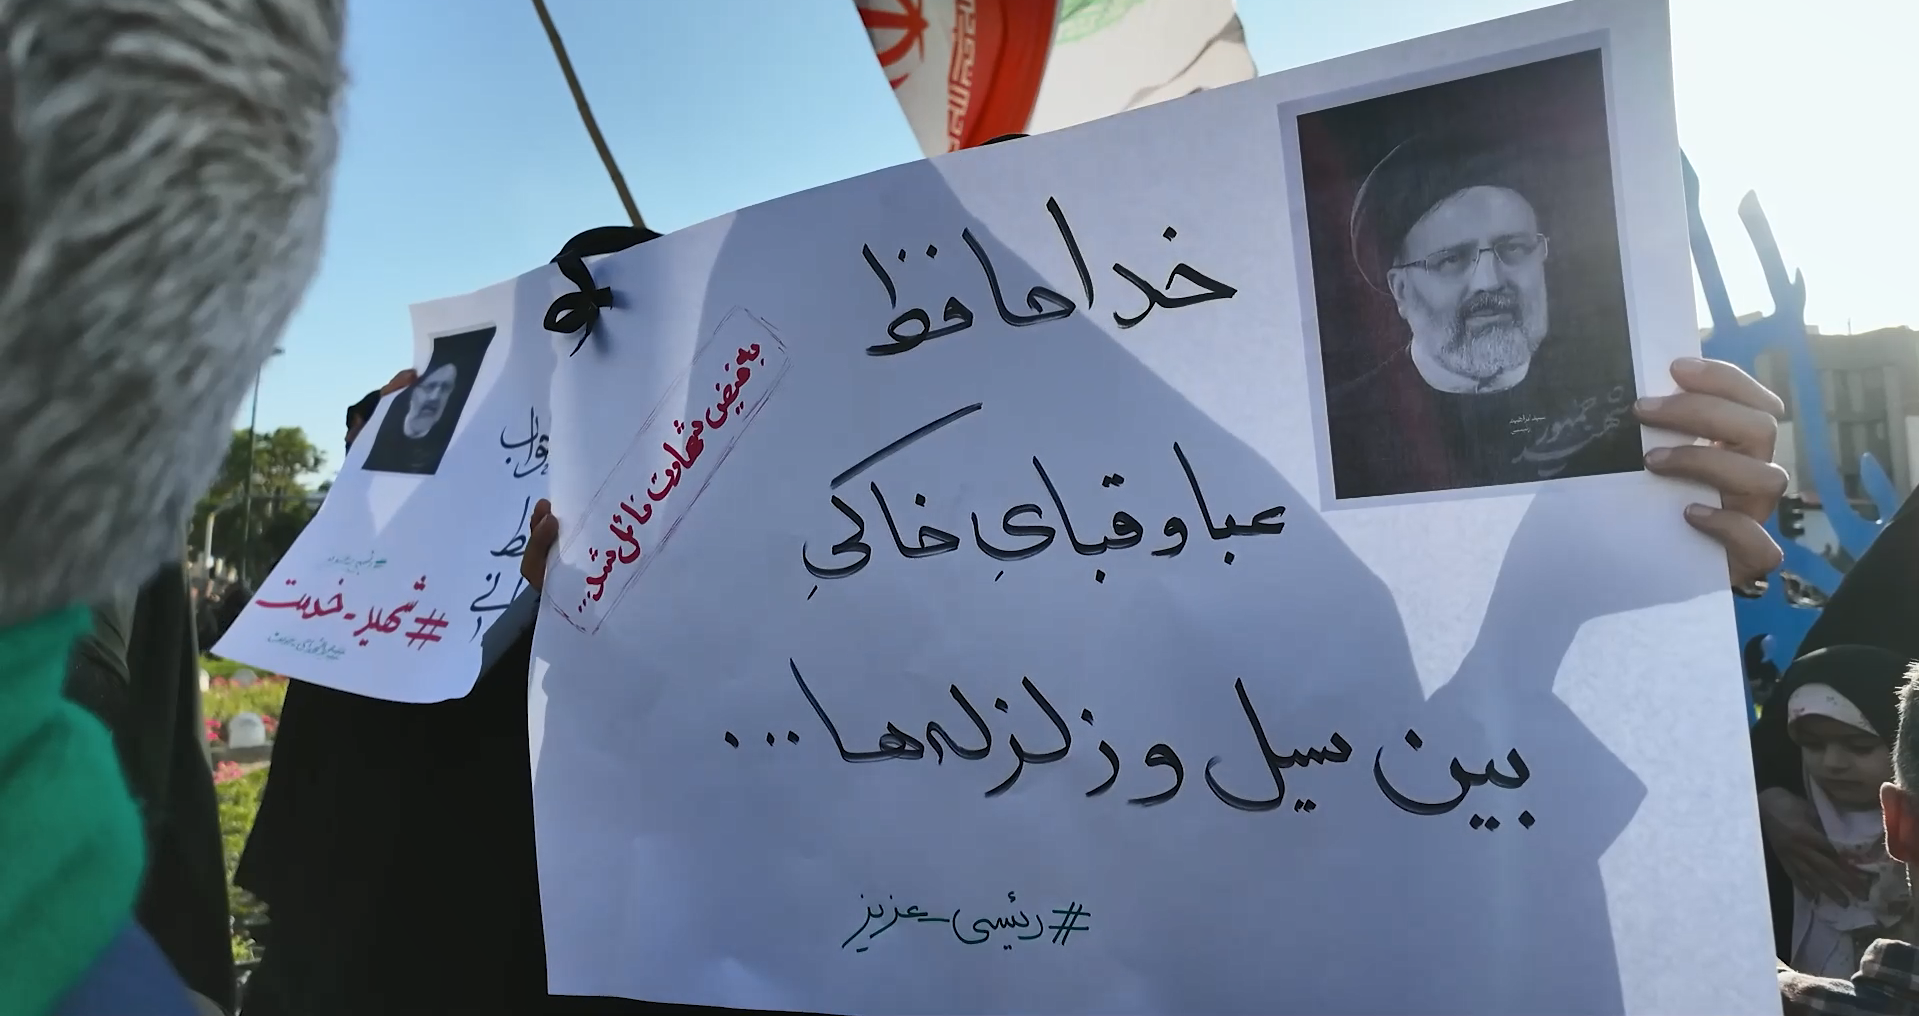 خداحافظ
عبا و قبایِ خاکیِ
بین سیل و زلزله‌ها...
#رئیسی_عزیز
به فیض شهادت نائل شد...
شهید جمهور
سید ابراهیم
رئیسی
#شهید_خدمت